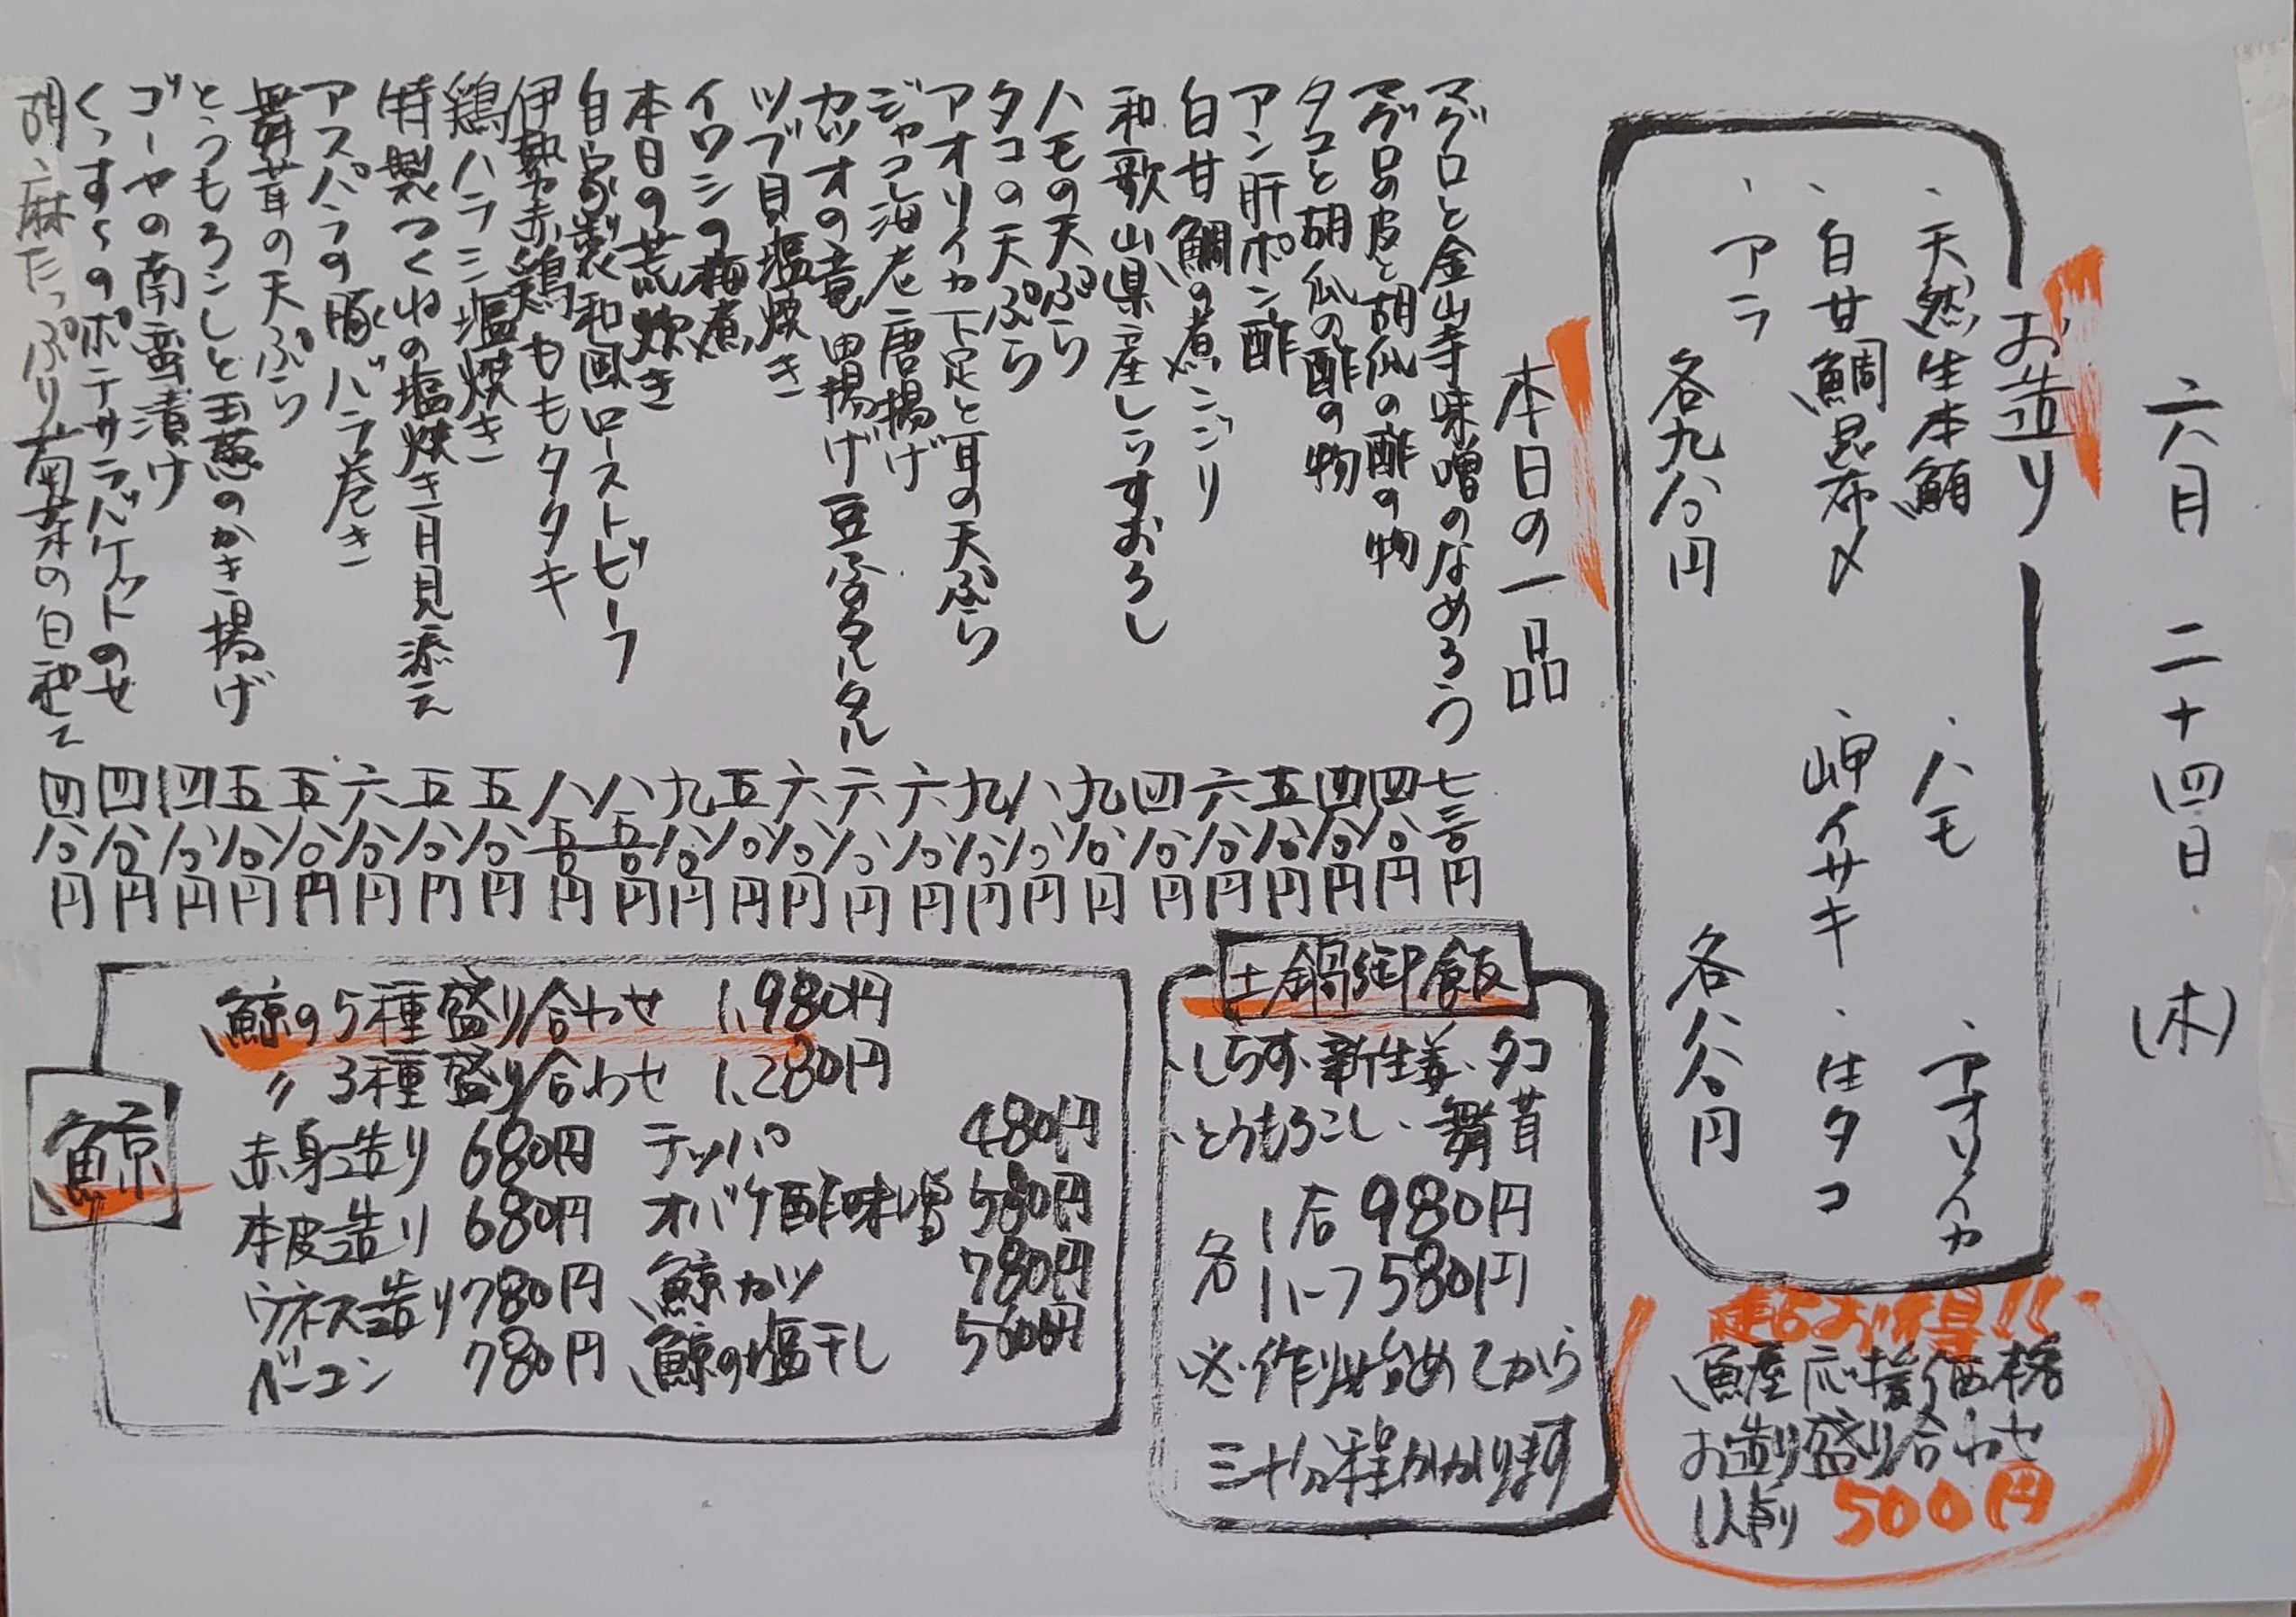 六月 二十四日 (木)
お造り
、天然生本鮪 、ハモ 、アオリイカ
、白甘鯛昆布〆 、岬イサキ 、生タコ
、アラ
各九八〇円 各八八〇円
本日の一品
マグロと金山寺味噌のなめろう 七三〇円
マグロの皮と胡瓜の酢の物 四八〇円
タコと胡瓜の酢の物 四八〇円
アン肝ポン酢 五八〇円
白甘鯛の煮こごり 六八〇円
和歌山県産しらすおろし 四八〇円
ハモの天ぷら 九八〇円
タコの天ぷら 八八〇円
アオリイカ下足と耳の天ぷら 九八〇円
ジャコ海老唐揚げ 六八〇円
カツオの竜田揚げ豆ふのタルタル 六八〇円
ツブ貝塩焼き 六八〇円
イワシの梅煮 五八〇円
本日の荒炊き 九八〇円
自家製和風ローストビーフ 八五〇円
伊勢赤鶏ももタタキ 八五〇円
鶏ハラミ塩焼き 五八〇円
特製つくねの塩焼き月見添え 五八〇円
アスパラの豚バラ巻き 六八〇円
舞茸の天ぷら 五八〇円
とうもろこしと玉葱のかき揚げ 五八〇円
ゴーヤの南蛮漬け 四八〇円
くっすんのポテサラバケットのせ 四八〇円
胡麻たっぷり菊菜の白和え 四八〇円
土鍋御飯
、しらす、新生姜、タコ
、とうもろこし、舞茸
各 1合 980円
ハーフ 580円
※作り始めてから
三十分程かかります
鯨
鯨の5種盛り合わせ 1,980円
〃 3種盛り合わせ 1,280円
赤身造り 680円 テッパ 480円
本皮造り 680円 オバケ酢味噌 580円
ウネス造り 780円 鯨カツ 780円
ベーコン 780円 鯨の塩干し 500円
お得!!
魚屋応援価格
お造り盛り合わせ
1人前 500円